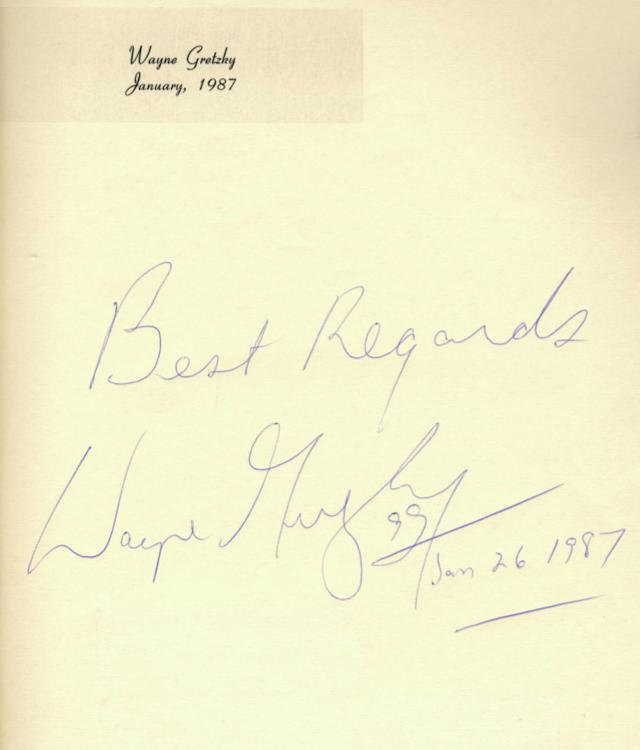 Wayne Gretzky
January, 1987
Best Regards
Wayne Gretzky 99
Jan 26 1987